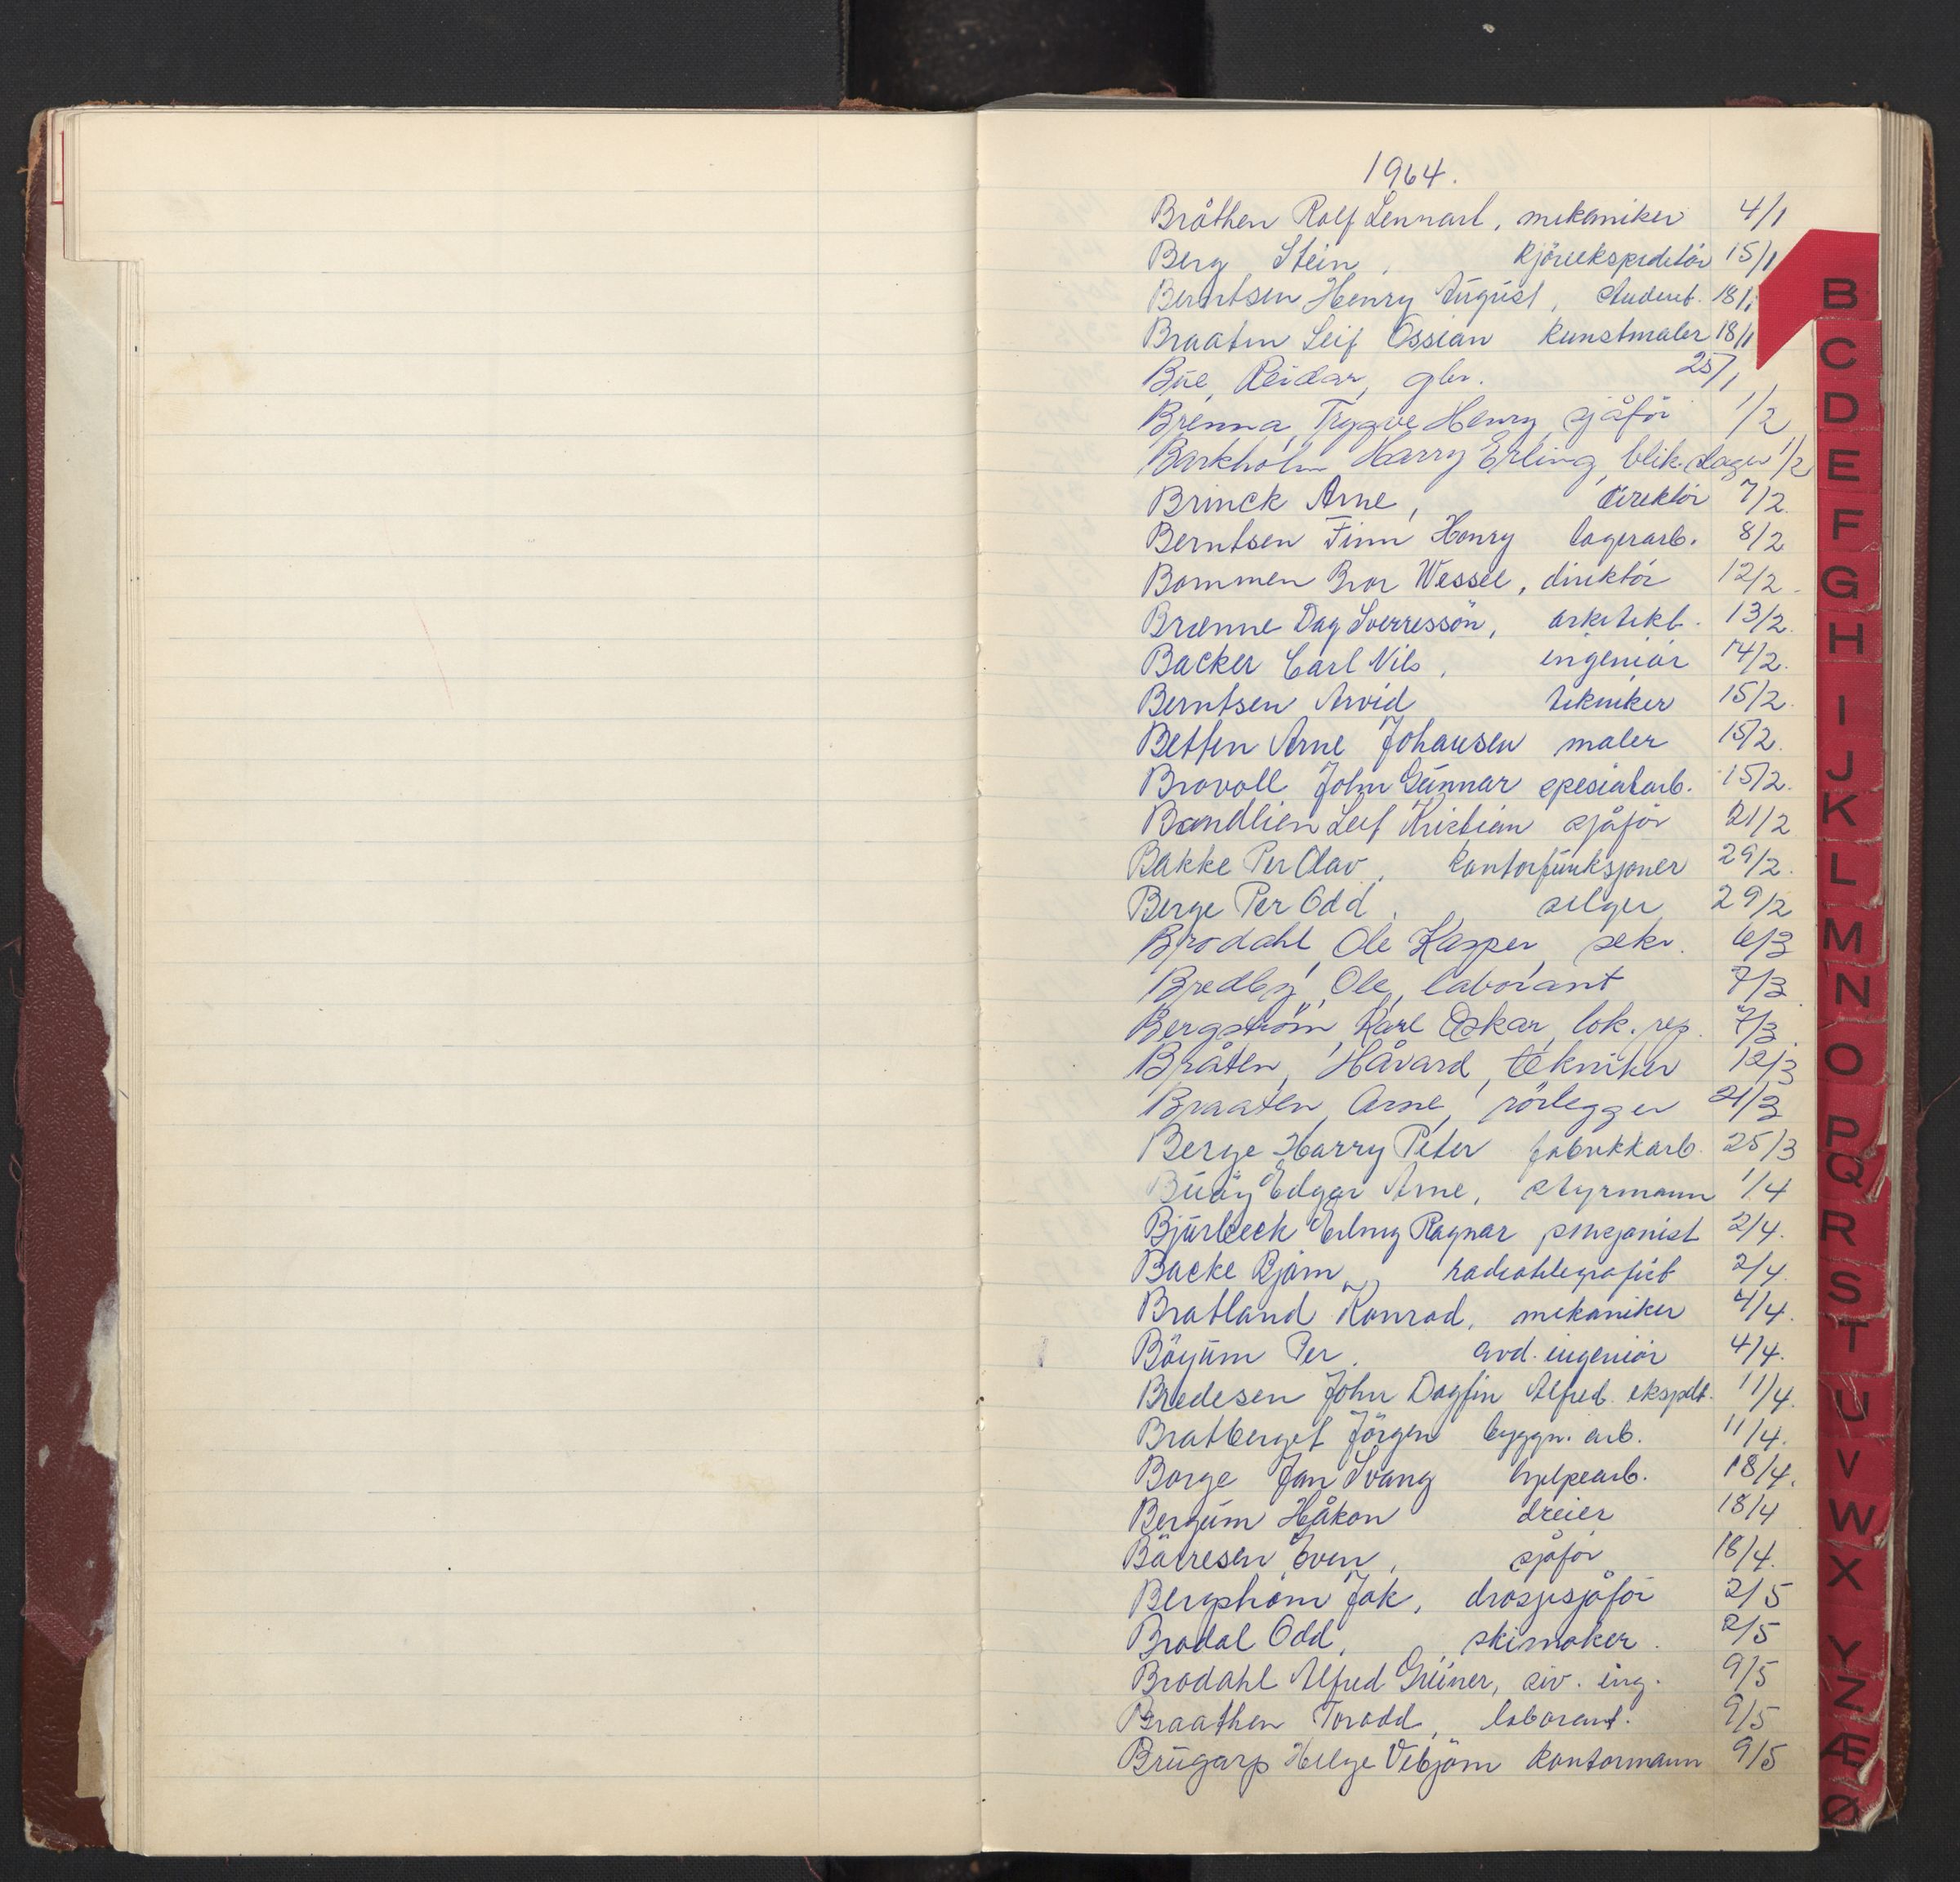 1964.
Bråthen Rolf Lennart, mekaniker 4/1
Berg Stein, kjöreekspeditör 15/1
Berntsen Henry August, student. 18/1
Braaten Leif Ossian kunstmaler 18/1
Bue, Reidar, gbr. 25/1
Brenna, Trygve Henry, sjåför 1/2
Barkholm, Harry Erling, blik.slager 1/2
Brinck Arne, direktör 7/2
Berntsen Finn Henry lagerarb. 8/2
Bommen Bror Wessel, direktör 12/2
Brænne Dag Sverressön, arkitekt. 13/2
Backer Carl Nils, ingeniör 14/2.
Berntsen Arvid tekniker 15/2.
Betten Arne Johansen maler 15/2.
Brovoll John Gunnar spesialarb. 15/2.
Bandlien Leif Kristian sjåför 21/2
Bakke Per Olav, kontorfunksjonær 29/2.
Berge Per Odd, selger 29/2
Brodahl, Ole Kasper, sekr. 6/3
Bredby, Ole, laborant 7/3
Bergström, Karl Oskar, lok.rep. 7/3
Bråten, Håvard, tekniker 12/3
Braaten, Arne, rörlegger 21/3
Berge Harry Peter fabrikkarb. 25/3
Buöy Edgar Arne, styrmann 1/4
Bjurbeck Erling Ragnar pensjonist 2/4.
Backe Bjørn, radiotelegrafist 2/4.
Bratland Konrad, mekaniker 4/4.
Böyum Per, avd. ingeniör 4/4.
Bredesen John Dagfin Alfred. ekspdt. 11/4.
Bratberget Jörgen byggn. arb. 11/4.
Borge Jan Svang hjelpearb. 18/4.
Bergum Håkon dreier 18/4
Bårresen Even, sjåför 18/4.
Bergström Jak, drosjesjåför 2/5
Brodal Odd, skimaker. 2/5
Brodahl Alfred Greiner, siv. ing. 9/5
Braathen Torodd, laborant. 9/5
Brugarp Helge Vebjörn kontormann 9/5
B
C
D
E
F
G
H
I
J
K
L
M
N
O
P
Q
R
S
T
U
V
W
X
Y
Z
Æ
Ø